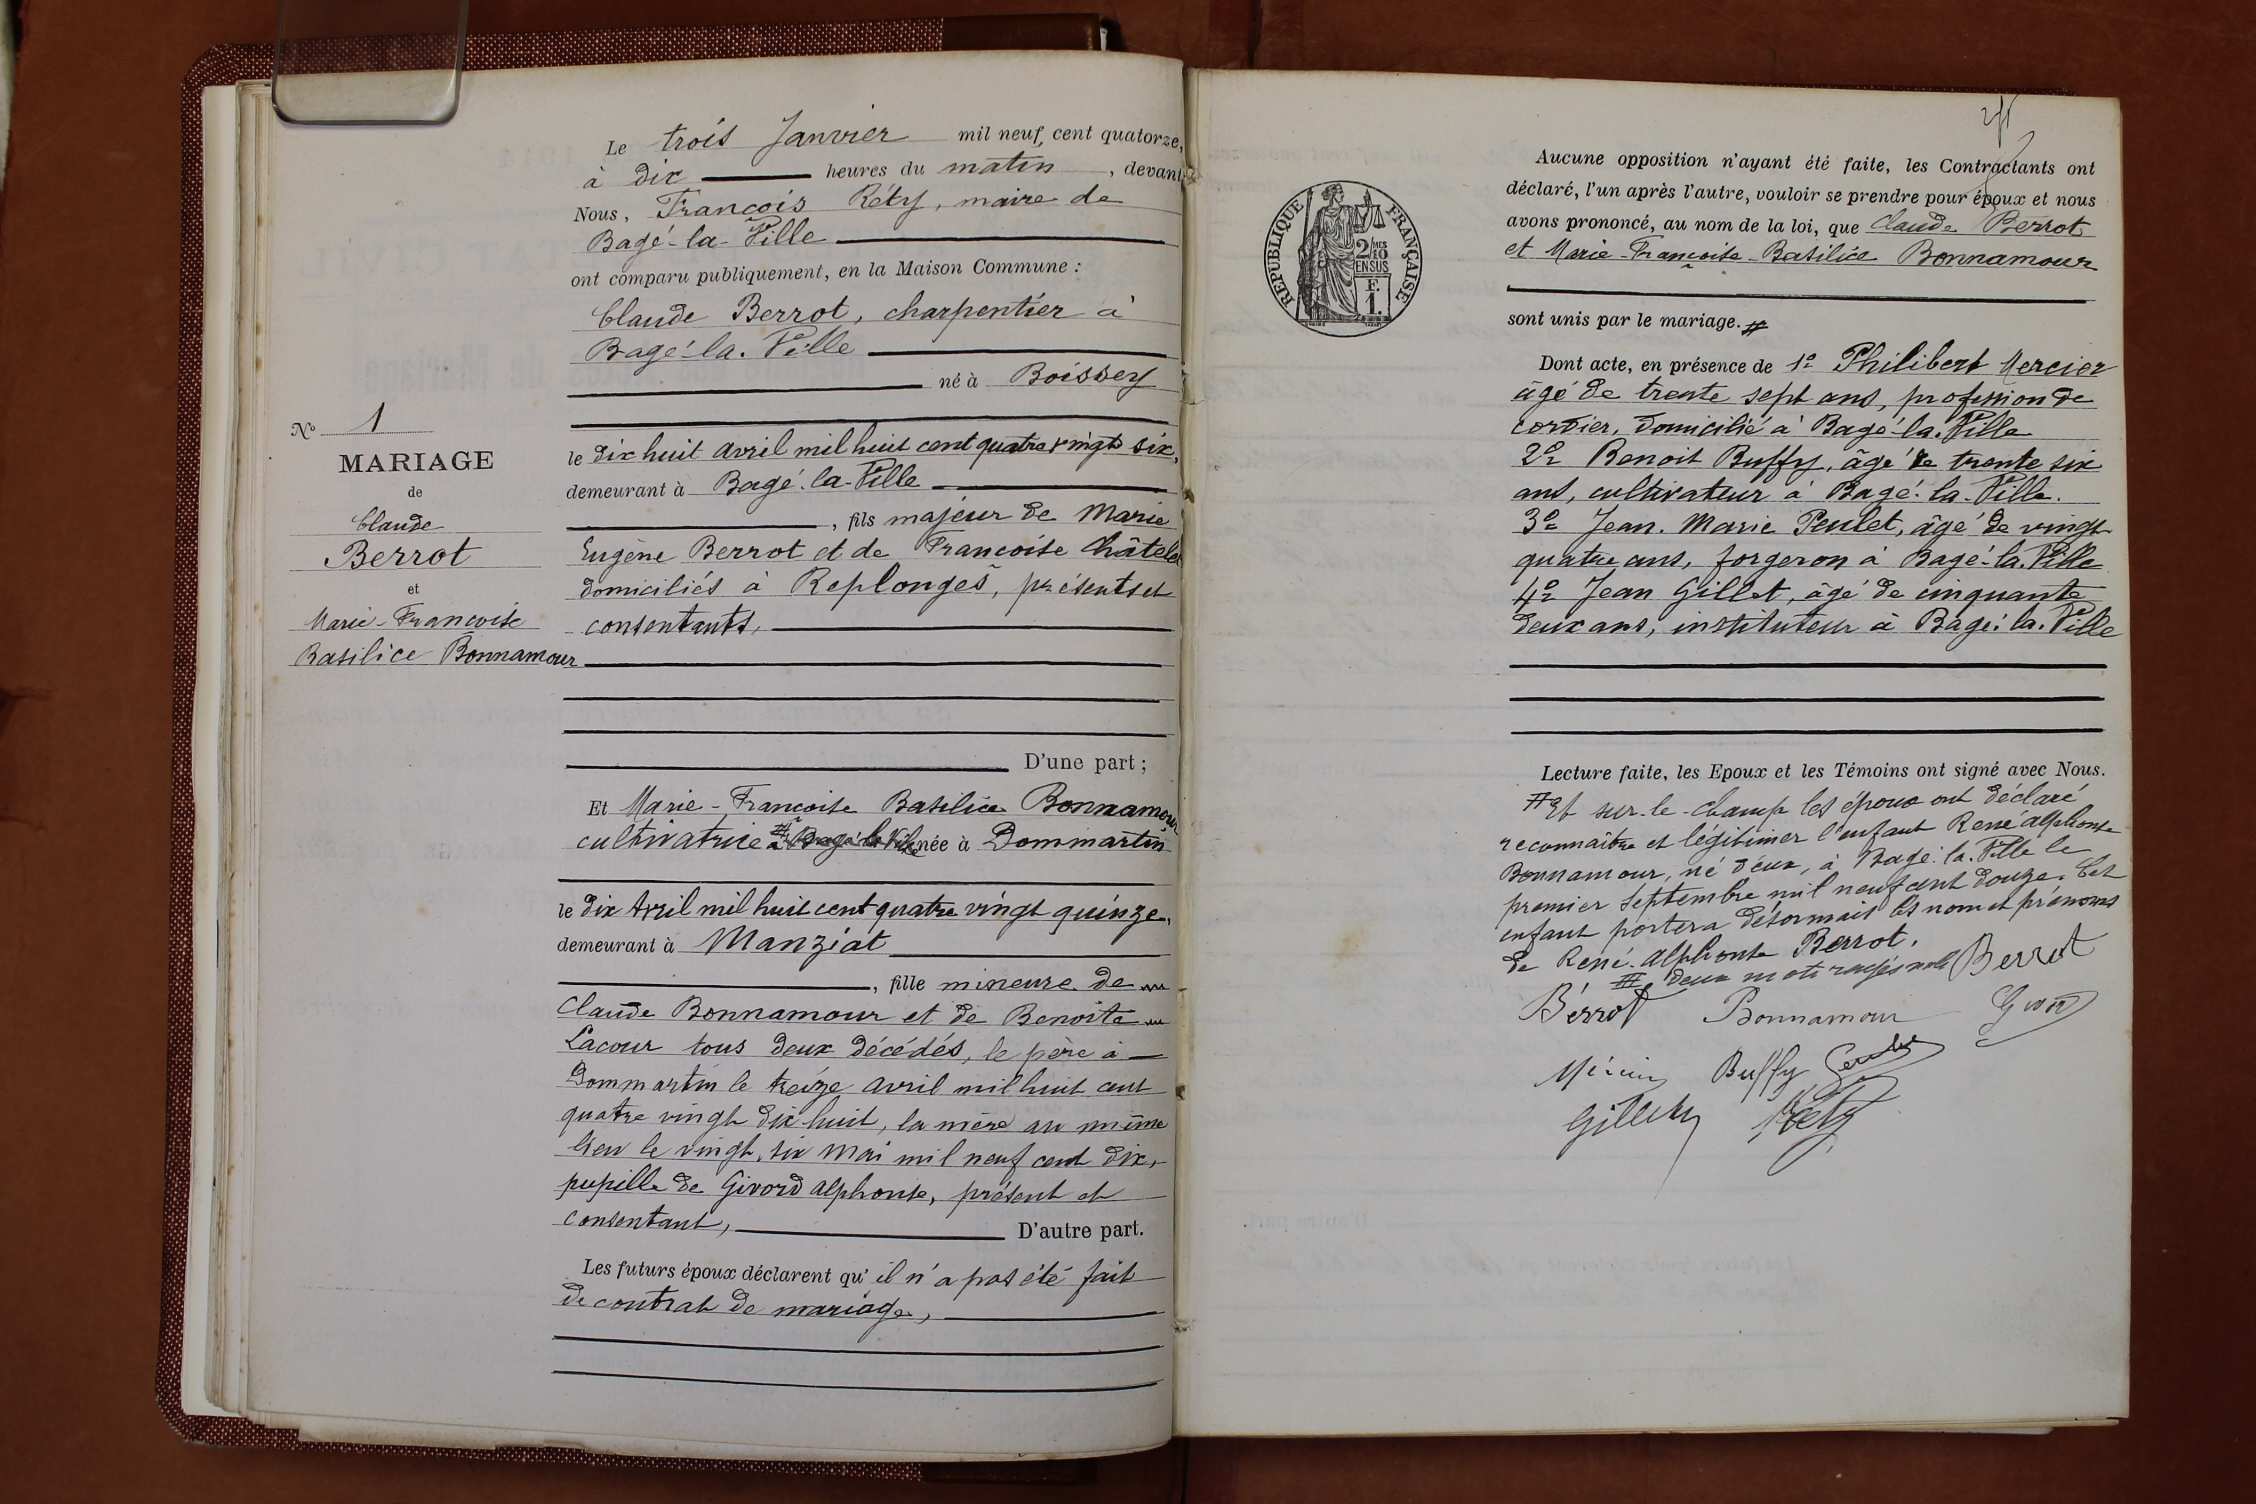 Le trois Janvier mil neuf cent quatorze,
à dix heures du matin, devant
Nous, François Réty, maire de
Bagé-la-Ville
ont comparu publiquement, en la Maison Commune :
Claude Berrot, charpentier à
Bagé-la-Ville
né à Boissey
le dix huit avril mil huit cent quatre vingt six,
demeurant à Bagé-la-Ville
, fils majeur de Marie
Eugène Berrot et de Françoise Châtelet
domiciliés à Replonges, présents et
consentants,
D'une part ;
Et Marie-Françoise Basilice Bonnamour
cultivatrice à Bagé la Ville née à Dommartin
le dix Avril mil huit cent quatre vingt quinze,
demeurant à Manziat
, fille mineure de
Claude Bonnamour et de Benoîte
Lacour tous deux décédés, le père à
Dommartin le treize avril mil huit cent
quatre vingt dix huit, la mère au même
lieu le vingt six mai mil neuf cent dix,
pupille de Givord Alphonse, présent et
consentant,
D'autre part.
Les futurs époux déclarent qu'il n'a pas été fait
de contrat de mariage,
No 1
MARIAGE
de
Claude
Berrot
et
Marie-Françoise
Basilice Bonnamour
RÉPUBLIQUE FRANÇAISE
2/10 MES
EN SUS
F.
1.
Aucune opposition n'ayant été faite, les Contractants ont
déclaré, l'un après l'autre, vouloir se prendre pour époux et nous
avons prononcé, au nom de la loi, que Claude Berrot
et Marie-Françoise-Basilice Bonnamour
sont unis par le mariage. #
Dont acte, en présence de 1º Philibert Mercier
âgé de trente sept ans, profession de
cordier, domicilié à Bagé-la-Ville
2º Benoit Buffy, âgé de trente six
ans, cultivateur à Bagé-la-Ville.
3º Jean-Marie Peulet, âgé de vingt
quatre ans, forgeron à Bagé-la-Ville
4º Jean Gillet, âgé de cinquante
deux ans, instituteur à Bagé-la-Ville
Lecture faite, les Epoux et les Témoins ont signé avec Nous.
# Et sur-le-champ les époux ont déclaré
reconnaître et légitimer l'enfant René Alphonse
Bonnamour, né d'eux, à Bagé-la-Ville le
premier septembre mil neuf cent douze. Cet
enfant portera désormais les nom et prénoms
de René-Alphonse Berrot.
# deux mots rayés nuls Berrot
Berrot Bonnamour
Buffy
Gillet Réty